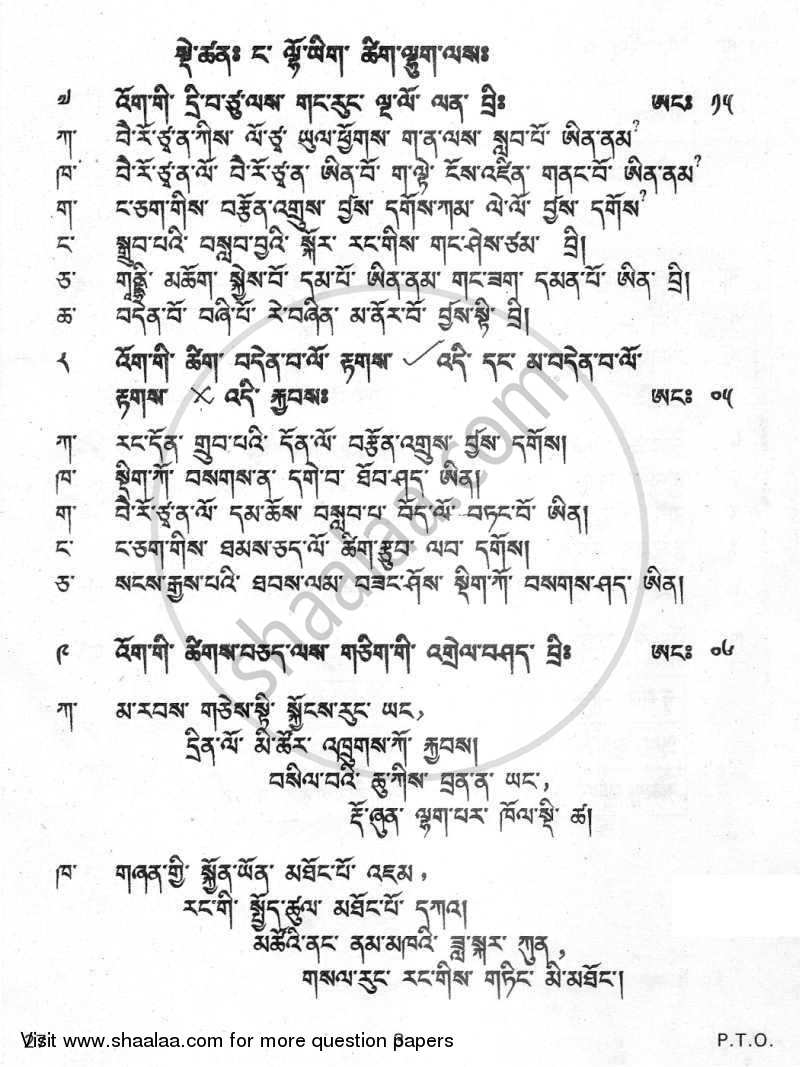 སྡེ་ཚན༔ ང་ ལྷོ་ཡིག་ ཚིག་ལྷུག་ལས༔
༧ འོག་གི་ དྲི་བ་ཙུ་ལས་ གང་རུང་ ལྔ་ལོ་ ལན་ བྲི༔ ཨང༔ ༡༥
ཀ་ བཻ་རོ་ཙྭ་ན་ཀིས་ ལོ་ཙྭ་ ཡུལ་ཕྱོགས་ ག་ན་ལས་ སླབ་པོ་ ཨིན་ནམ?
ཁ་ བཻ་རོ་ཙྭ་ན་ལོ་ བཻ་རོ་ཙྭ་ན་ ཨིན་བོ་ ག་ལྟེ་ ངོས་འཛིན་ གནང་བོ་ ཨིན་ནམ?
ག་ ང་ཅག་གིས་ བརྩོན་འགྲུས་ བྱས་ དགོས་ཀམ་ ལེ་ལོ་ བྱས་ དགོས?
ང་ སྒྲུབ་པའི་ བསླབ་བྱའི་ སྐོར་ རང་གིས་ གང་ཤེས་ཙམ་ བྲི།
ཅ་ མཆོག་ སྐྱེས་བོ་ དམ་པོ་ ཨིན་ནམ་ གང་ཟག་ དམན་པོ་ ཨིན་ བྲི།
ཆ་ བདེན་བོ་ བཞི་པོ་ རེ་བཞིན་ མ་ནོར་བོ་ བྱས་སྟི་ བྲི།
༨ འོག་གི་ ཚིག་ བདེན་བ་ལོ་ རྟགས་ ✓ འདི་ དང་ མ་བདེན་བ་ལོ་
རྟགས་ × འདི་ རྐྱབས༔ ཨང༔ ༠༥
ཀ་ རང་དོན་ གྲུབ་པའི་ དོན་ལོ་ བརྩོན་འགྲུས་ བྱས་ དགོས།
ཁ་ སྡིག་ཀོ་ བསགས་ན་ དགེ་བ་ ཐོབ་ཤད་ ཨིན།
ག་ བཻ་རོ་ཙྭ་ན་ལོ་ དམ་ཆོས་ བསླབ་པ་ བོད་ལོ་ བཏང་བོ་ ཨིན།
ང་ ང་ཅག་གིས་ ཐམས་ཅད་ལོ་ ཚིག་རྩུབ་ ལབ་ དགོས།
ཅ་ སངས་རྒྱས་པའི་ ཐབས་ལམ་ བཟང་ཤོས་ སྡིག་ཀོ་ བསགས་ཤད་ ཨིན།
༩ འོག་གི་ ཚིགས་བཅད་ལས་ གཅིག་གི་ འགྲེལ་བཤད་ བྲི༔ ཨང༔ ༠༦
ཀ་ མ་རབས་ གཅེས་སྟི་ སྐྱོངས་རུང་ ཡང་,
དྲིན་ལོ་ མི་ཚོར་ འཁྲུགས་ཀོ་ རྐྱབས།
བསིལ་བའི་ ཆུ་ཀིས་ བྲན་ན་ ཡང་,
རྡོ་ཞུན་ ལྷག་པར་ ཁོལ་སྡི་ ཚ།
ཁ་ གཞན་གྱི་ སྐྱོན་ཡོན་ མཐོང་པོ་ འཇམ,
རང་གི་ སྤྱོད་ཚུལ་ མཐོང་པོ་ དཀའ།
མཚོའི་ནང་ ནམ་མཁའི་ ཟླ་སྐར་ ཀུན,
གསལ་རུང་ རང་གིས་ གཏིང་ མི་མཐོང་།
shaalaa.com
Visit www.shaalaa.com for more question papers 3 P.T.O.